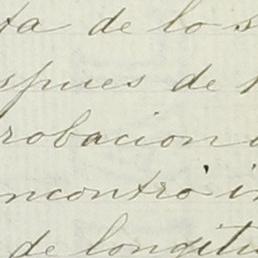 ta de lo s
spues de
robacion
ncontró i
de longitu